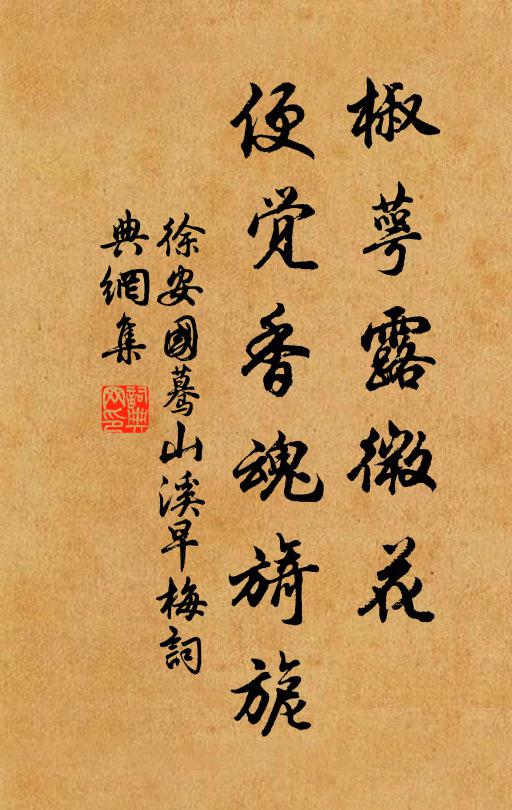 椒萼露微花
便觉香魂旖旎
徐安國蓦山溪早梅詞
典網集
詞典网印